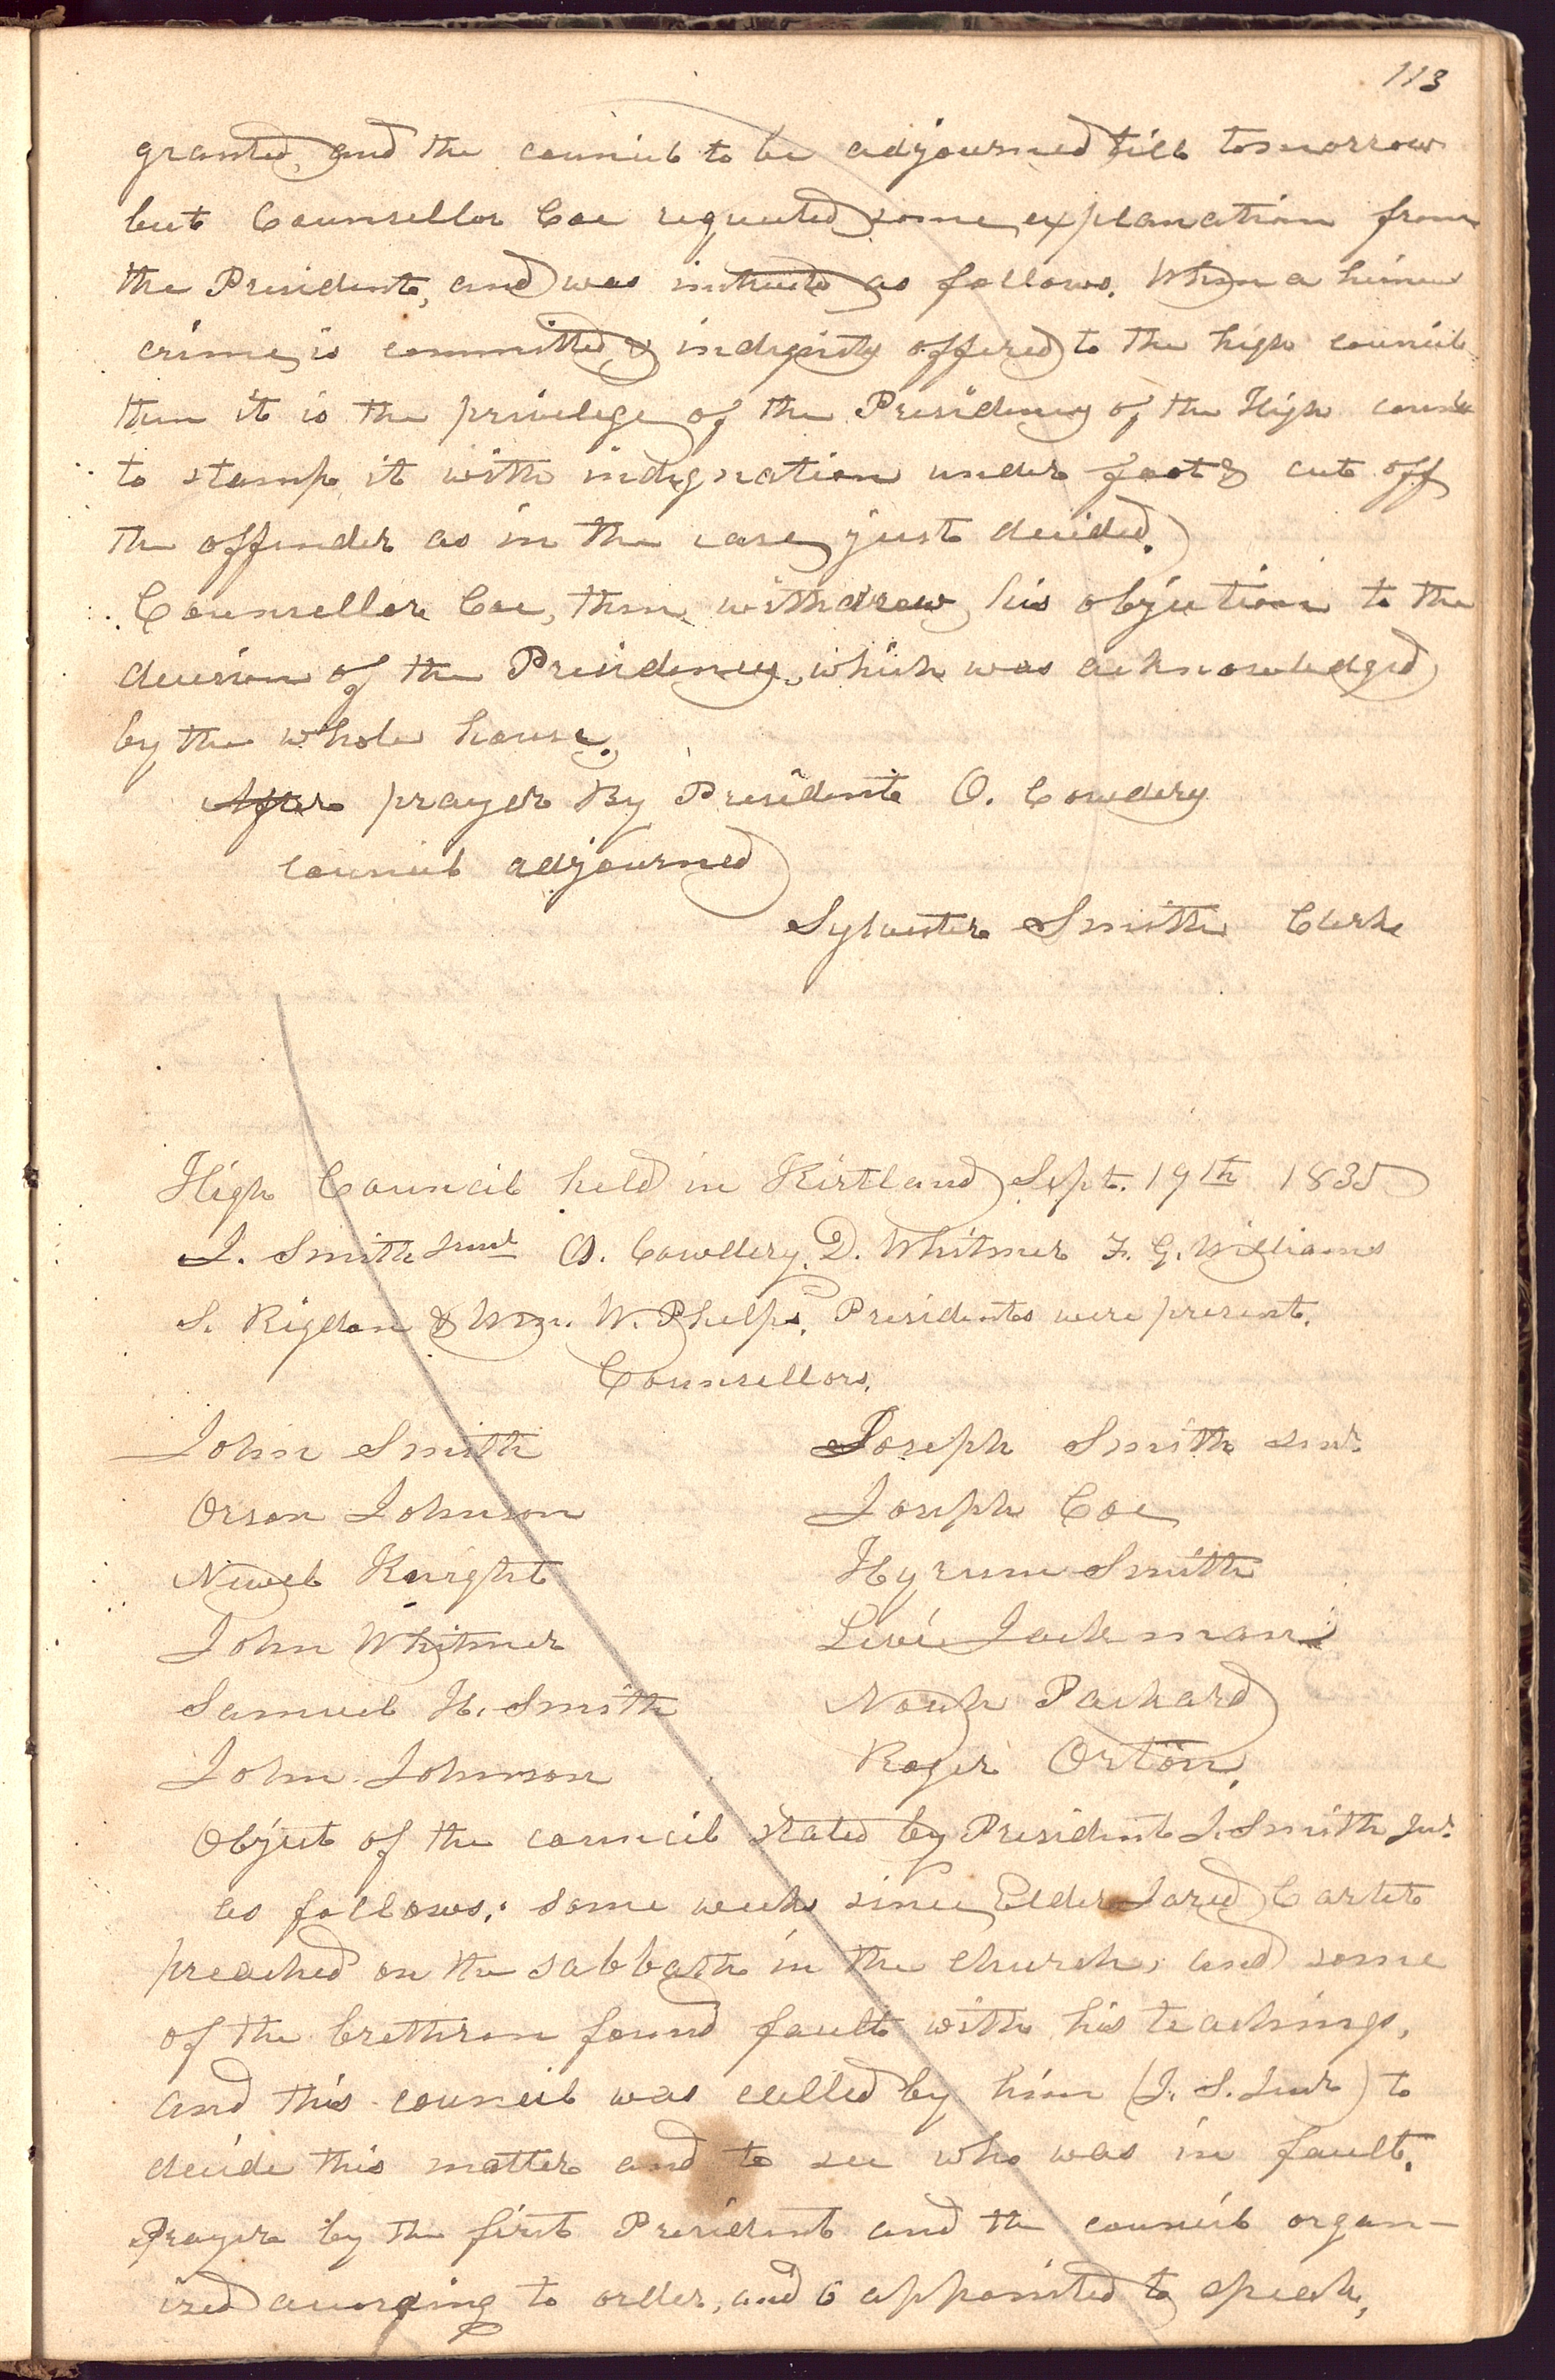 113
granted, and the council to be adjourned till tomorrow
but Counsellor Coe requested some explanation from
the Presidents, and was instructed as follows. When a heinous
crime is committed & indignity offered to the high council
then it is the privilege of the Presidency of the High council
to stamp it with indignation under foot & cut off
the offender as in the case just decided.
Counsellor Coe, then withdrew his objection to the
decision of the Presidency, which was acknowledged
by the whole house.
After prayer By President O. Cowdery
council adjourned
Sylvester Smith Clerk
High Council held in Kirtland Sept. 19th 1835
J. Smith Junr O. Cowdery, D. Whitmer F. G. Williams
S. Rigdon & Wm. W. Phelps, Presidents were present.
Counsellors,
John Smith Joseph Smith senr.
Orson Johnson Joseph Coe
Newel Knight Hyrum Smith
John Whitmer Levi Jackman
Samuel H. Smith Noah Packard
John Johnson Roger Orton.
Object of the council stated by President J. Smith Jur.
as follows: some weeks since Elder Jared Carter
preached on the sabbath in the church, and some
of the brethren found fault with his teachings,
and this council was called by him (J. S. Junr) to
decide this matter and to see who was in fault.
Prayer by the first President and the council organ-
ized according to order, and 6 appointed to speak,